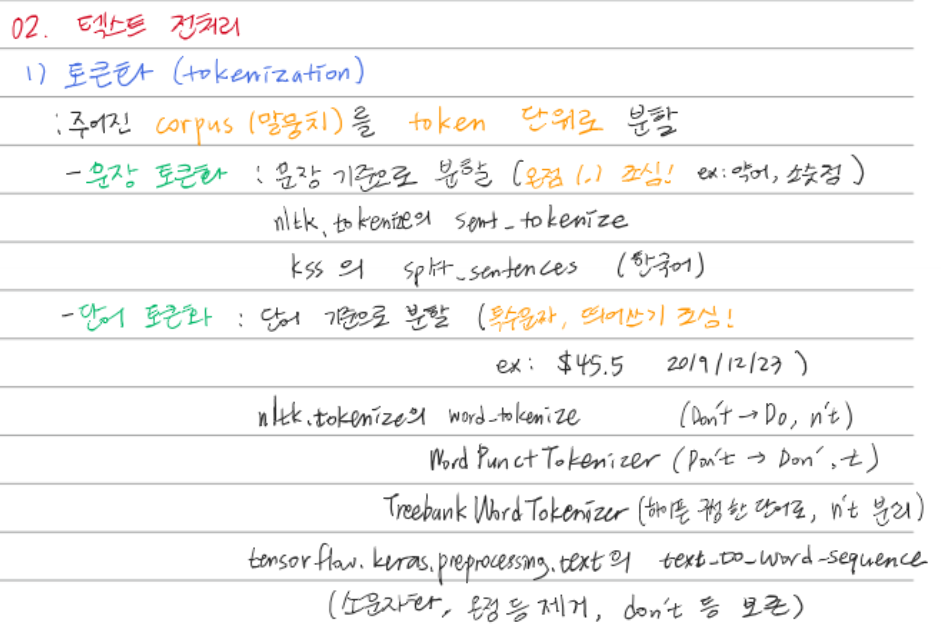 02. 텍스트 전처리
1) 토큰화 (tokenization)
: 주어진 corpus (말뭉치)를 token 단위로 분할
- 문장 토큰화 : 문장 기준으로 분할 (온점 (.) 조심! ex: 약어, 소숫점)
nltk.tokenize의 sent_tokenize
kss의 split_sentences (한국어)
- 단어 토큰화 : 단어 기준으로 분할 (특수문자, 띄어쓰기 조심!
ex: $45.5 2019/12/23 )
nltk.tokenize의 word_tokenize (Don't → Do, n't)
WordPunctTokenizer (Don't → Don', t)
TreebankWordTokenizer (하이픈 구성 한 단어로, n't 분리)
tensorflow.keras.preprocessing.text의 text_to_word_sequence
(소문자화, 온점 등 제거, don't 등 보존)